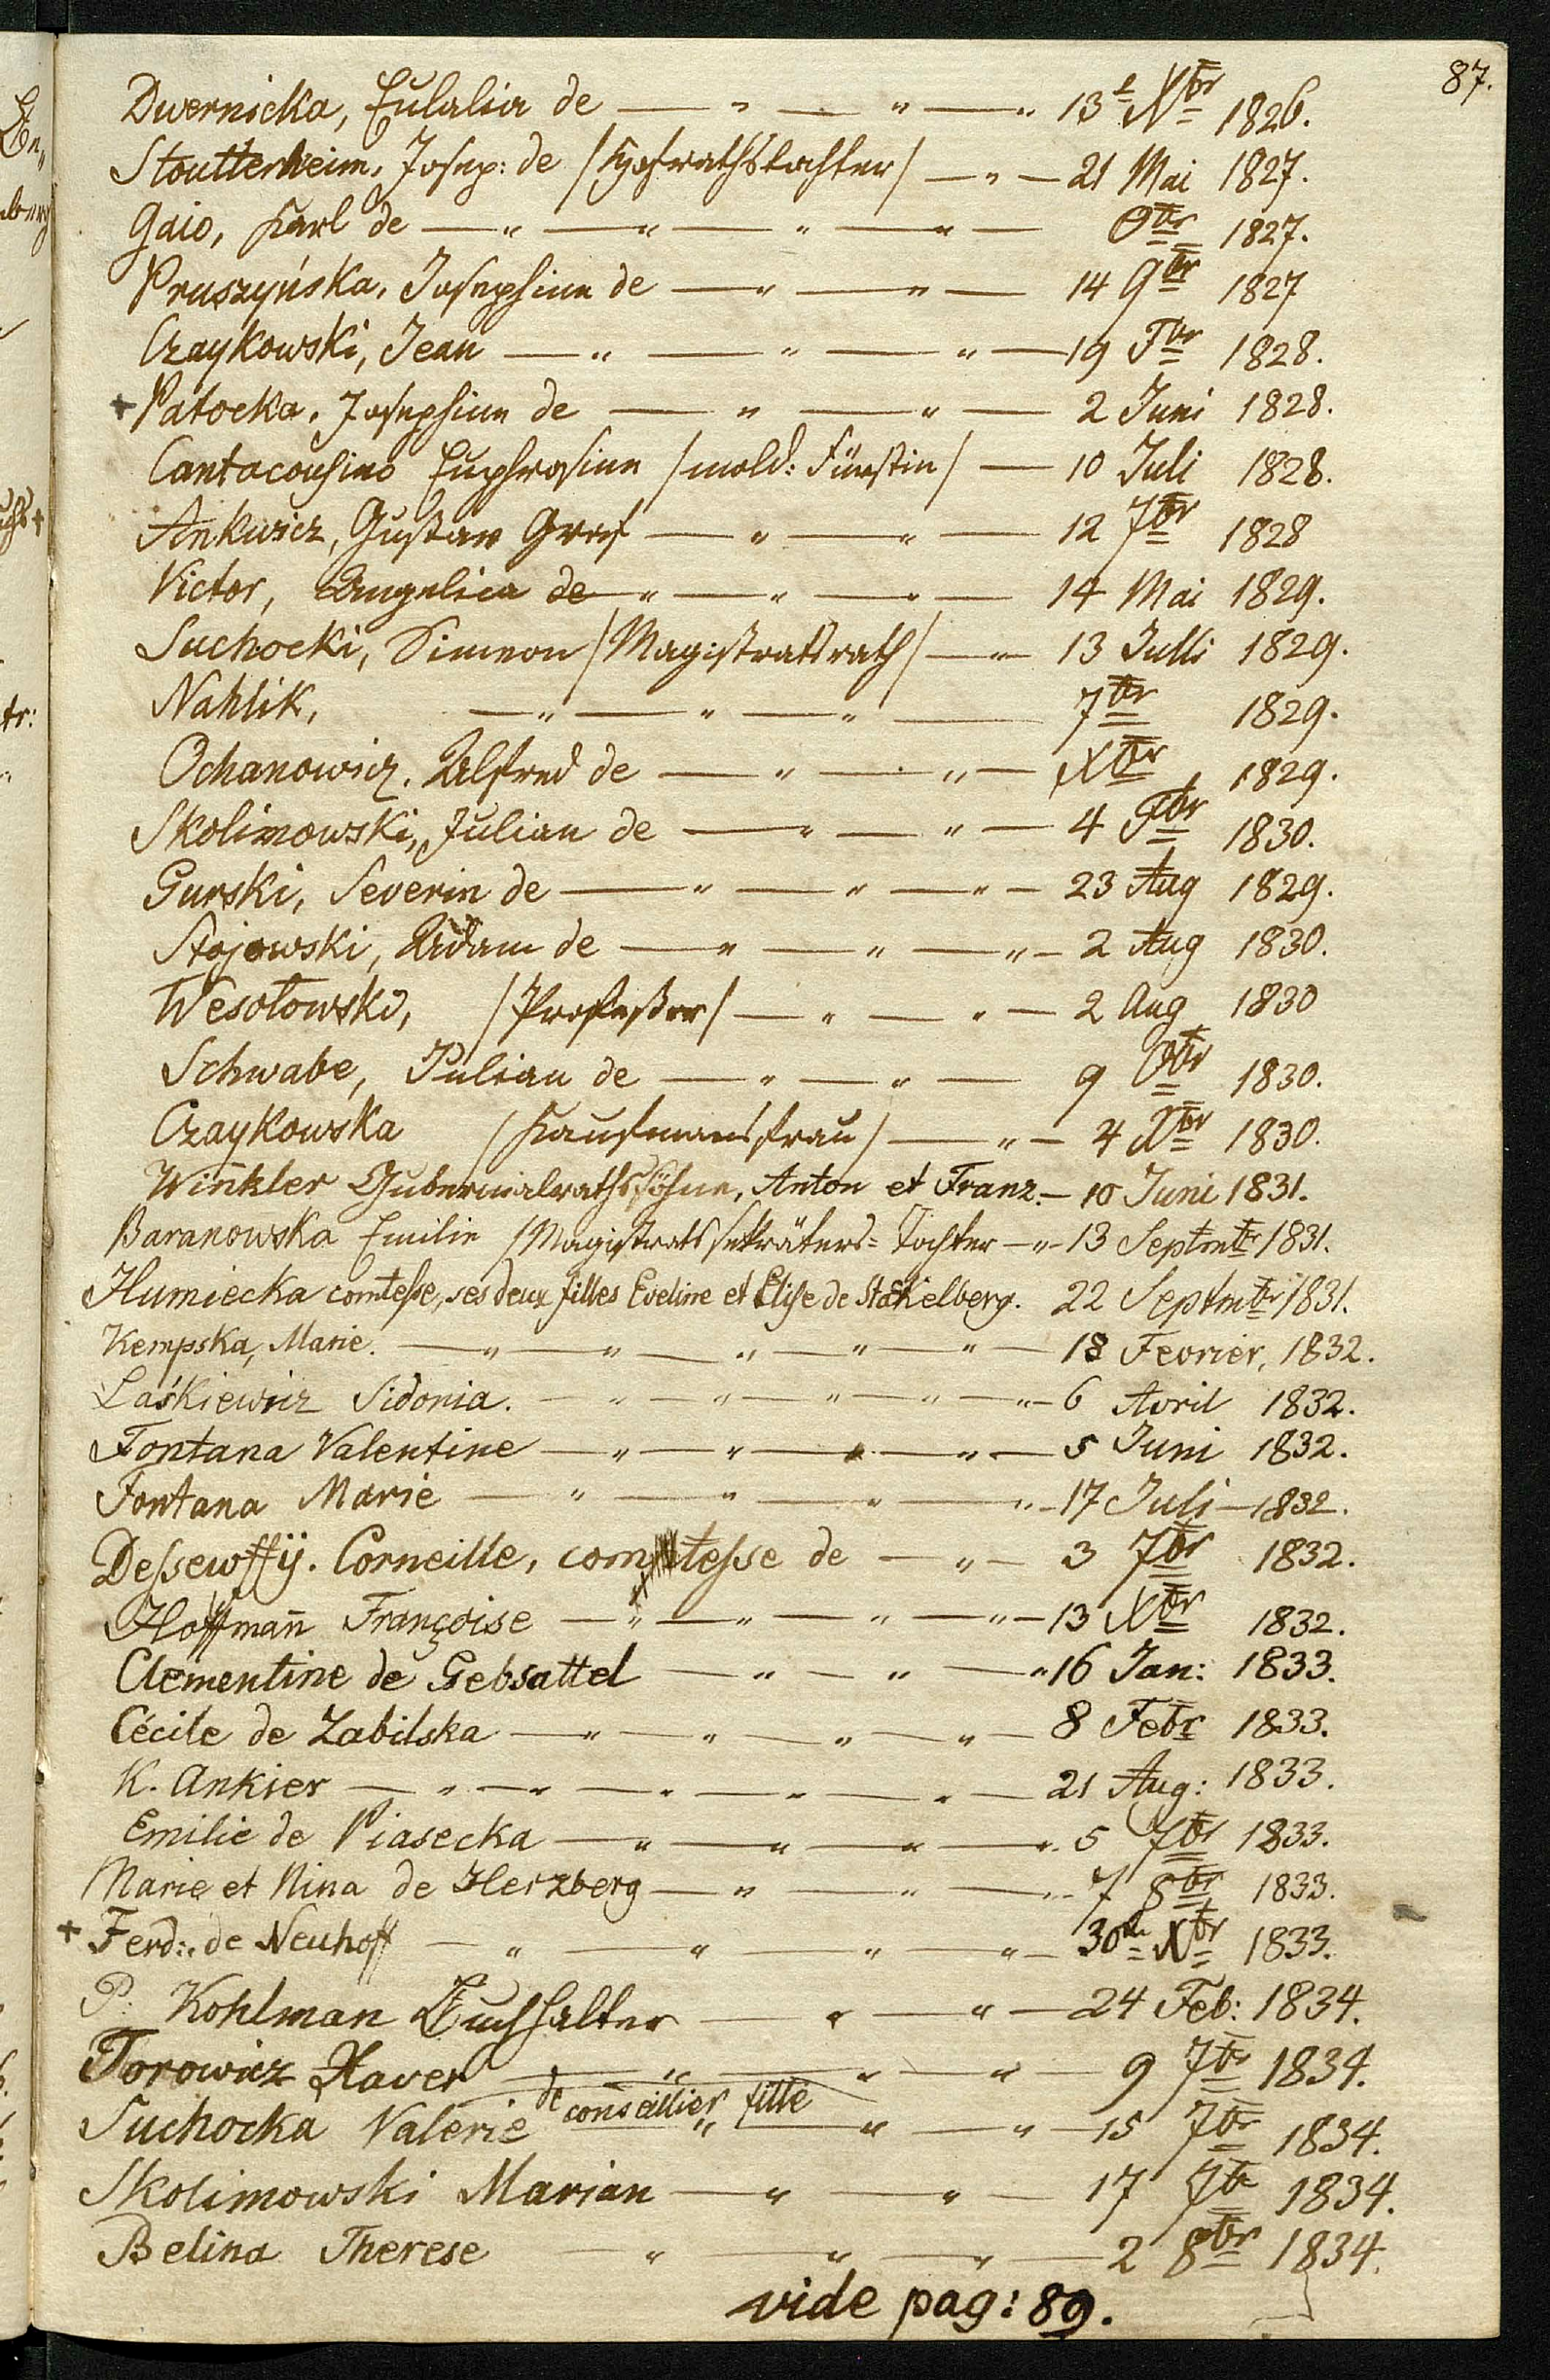 87.
Dwernicka, Eulalia de — " — " — " 13e Xbr 1826.
Stoutterheim, Josep: de /Hofrathstochter/ — " — 21 Mai 1827.
Gaio, Karl de — " — " — " — " — Obr 1827.
Pruszyńska, Josephine de — " — " — 14 9br 1827
Czaykowski, Jean — " — " — " — 19 Fbr 1828.
+ Patocka, Josephine de — " — " — 2 Juni 1828.
Cantacousino Euphrosine /mold: Fürstin/ — 10 Juli 1828.
Ankwicz, Gustav Graf — " — " — 12 7br 1828
Victor, Angelica de — " — " — " — 14 Mai 1829.
Suchocki, Simeon /Magistratsrath/ — " — 13 Julli 1829.
Nahlik, — " — " — " — 7br 1829.
Ochanowicz, Alfred de — " — " — Xbr 1829.
Skolimowski, Julian de — " — " — 4 Fbr 1830.
Gurski, Severin de — " — " — " — 23 Aug 1829.
Stojowski, Adam de — " — " — " — 2 Aug 1830.
Wesołowski, /Profeßor/ — " — " — 2 Aug 1830
Schwabe, Julian de — " — " — 9 Obr 1830.
Czaykowska /Kaufmansfrau/ — " — 4 Xbr 1830.
Win̄kler Gubernialrathssöhne, Anton et Franz. — 10 Juni 1831.
Baranowska Emilie /Magistratssekräters=Tochter — " — 13 Septmbr 1831.
Humiecka comteſse, ses deux filles Eveline et Eliſe de Stakelberg. 22 Septmbr 1831.
Kempska, Marie. — " — " — " — " — " — 18 Fevrier, 1832.
Laśkiewicz Sidonia. — " — " — " — " — " — 6 Avril 1832.
Fontana Valentine — " — " — " — " — 5 Juni 1832.
Fontana Marie — " — " — " — " — 17 Juli — 1832.
Deſsewffÿ. Corneille, comteſse de — " — 3 7br 1832.
Hoffman̄ Françoise — " — " — " — " — 13 Xbr 1832.
Clementine de Gebsattel — " — " — " 16 Jan: 1833.
Cécile de Zabilska — " — " — " — " — 8 Febr 1833.
K. Ankier — " — " — " — " — " — 21 Aug: 1833.
Emilie de Piasecka — " — " — " — " 5 7br 1833.
Marie et Nina de Herzberg — " — " — " 7 8br 1833.
+ Ferd: de Neuhoff — " — " — " — " — 30 Xbr 1833.
P: Kohlman Buchhalter — " — " — 24 Feb: 1834.
Torowicz Xaver — " — " — " — 9 7br 1834.
Suchocka Valerie de conseillier fille " — " — " — 15 7br 1834.
Skolimowski Marian — " — " — 17 7br 1834.
Belina Therese — " — " — " — 2 8br 1834.
vide pag: 89.